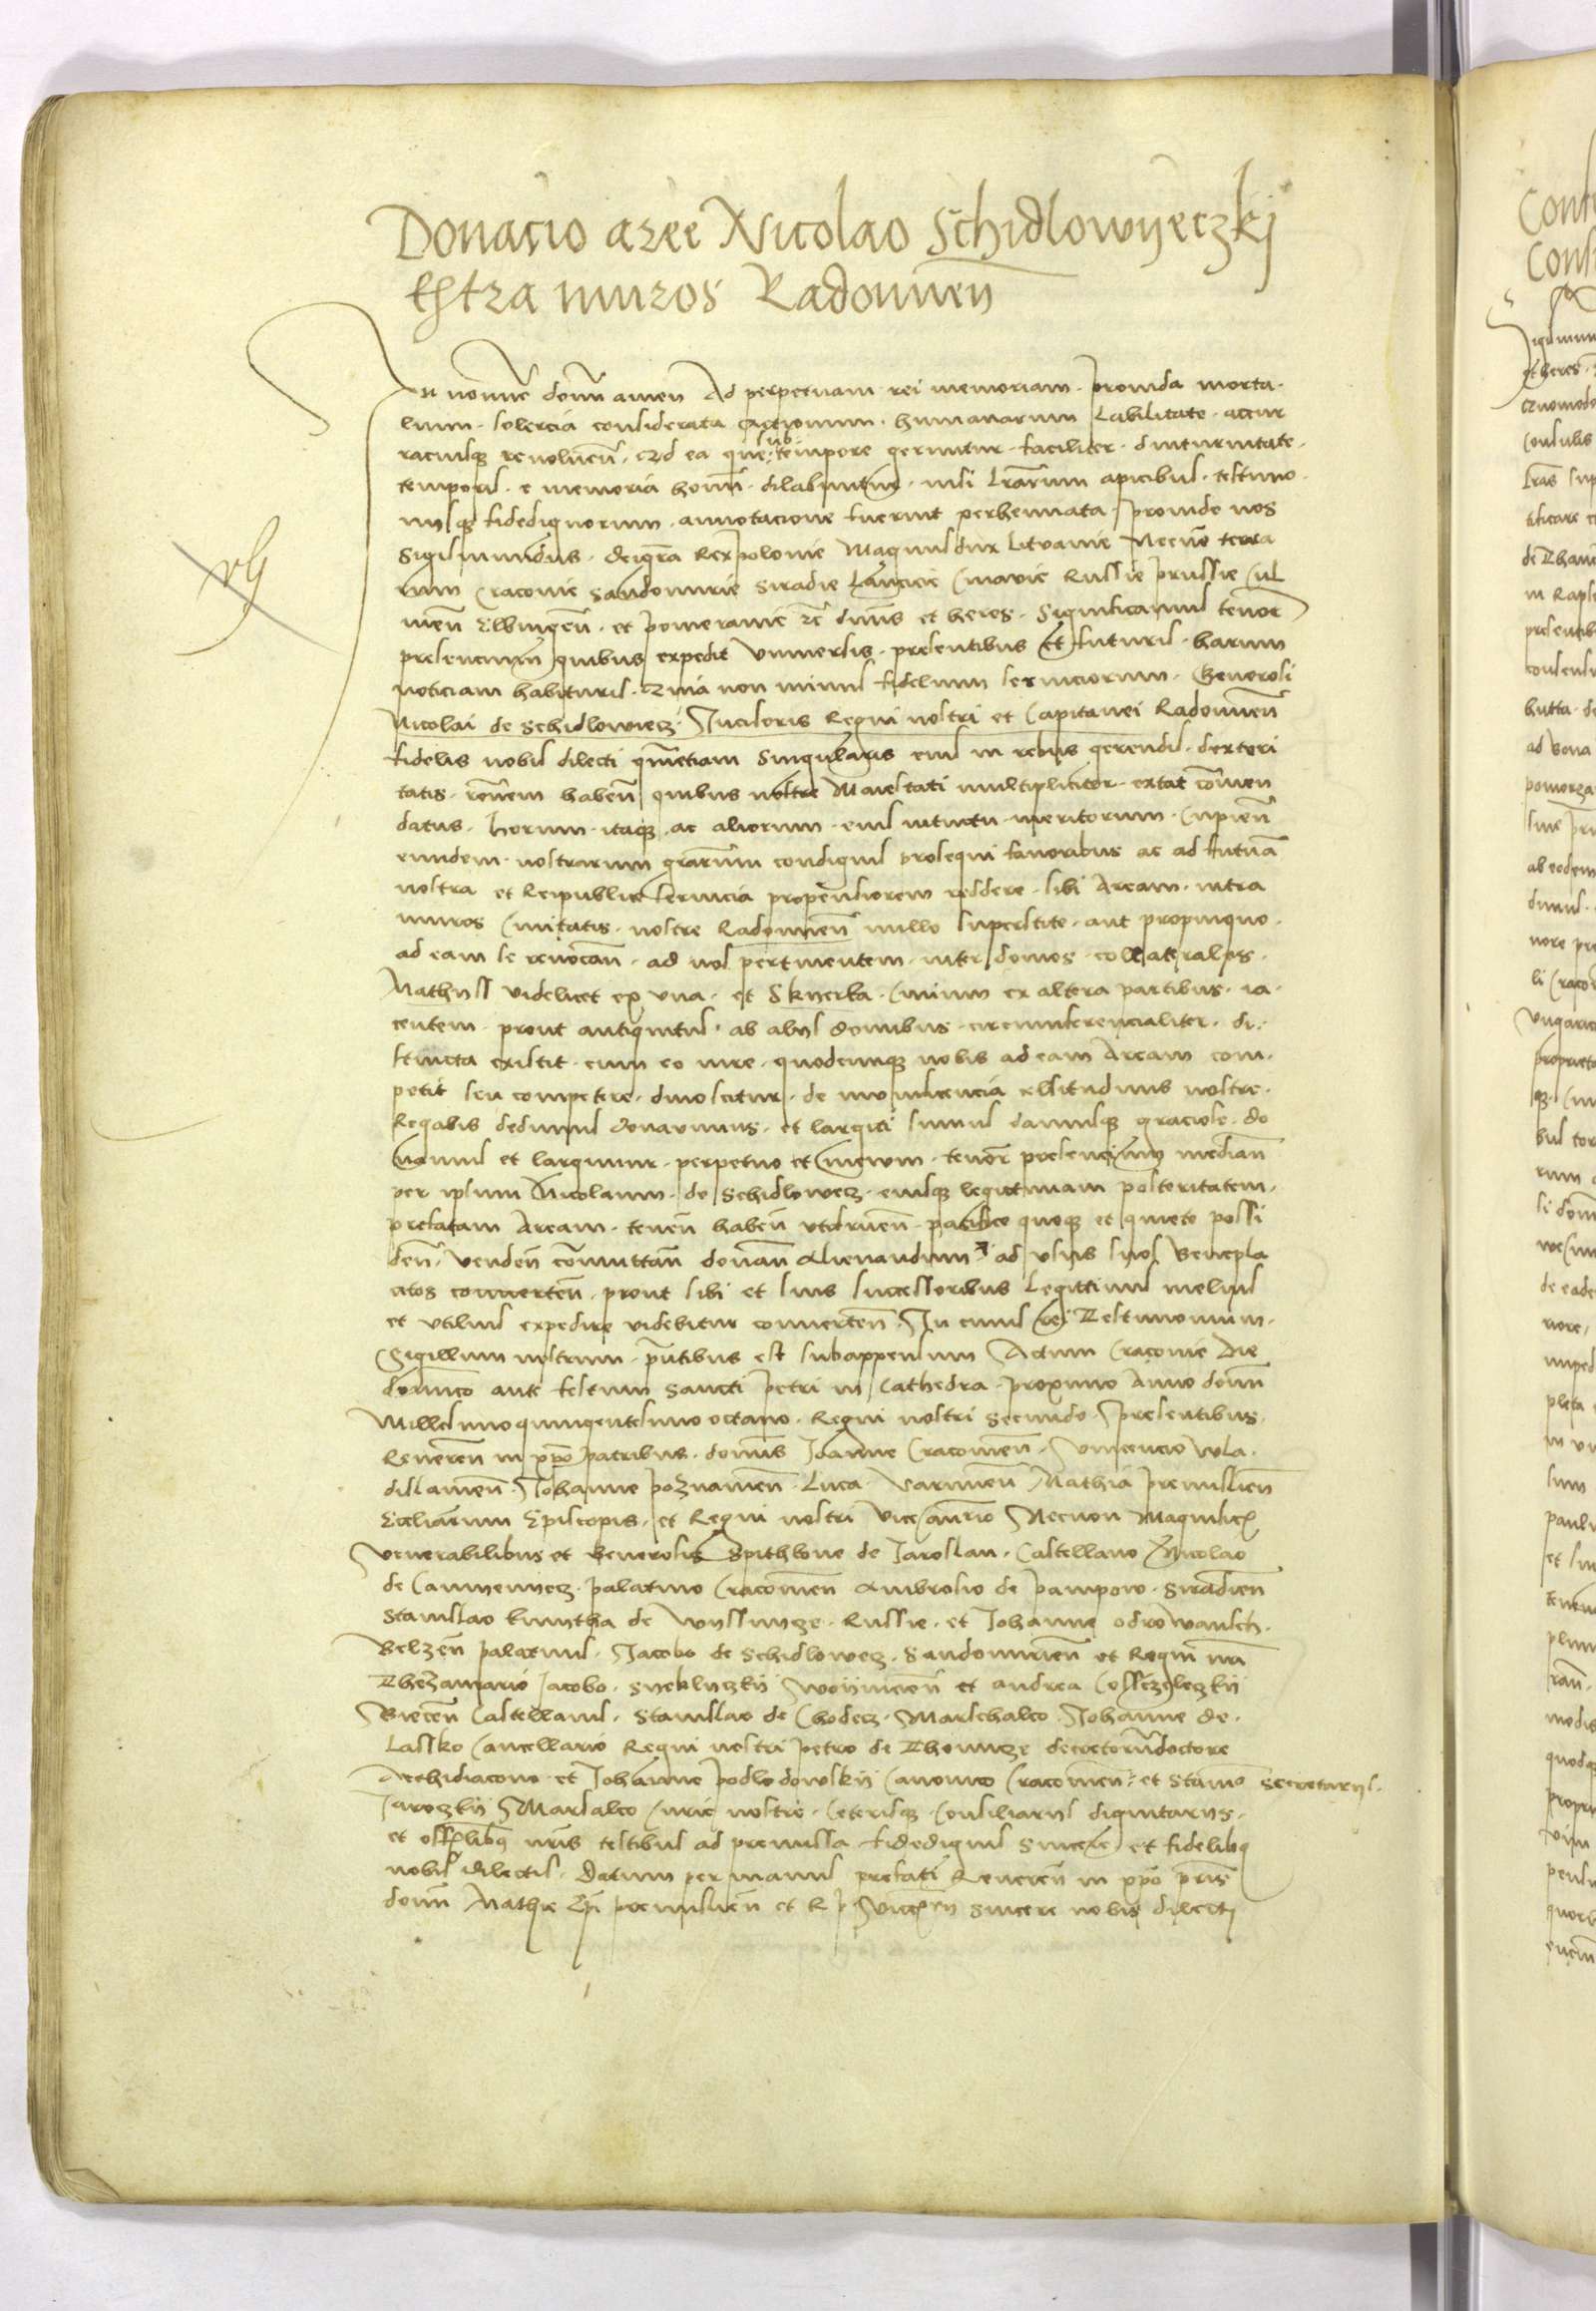 Donacio aree Nicolao Schidlowyeczkj
Extra muros Radomien
In nomie domi amen Ad perpetuam rei memoriam. Prouida morta
lium. solercia considerata actionum. humanarum Labilitate. accur
raciusque reuoluens. Quod ea que sub tempore geruntur. faciliter. diuturnitate.
temporis. e memoria homi. dilabuntur. nisi lrarum apicibus. testimo
niisque fidedignorum. annotacione fuerint perhennata. Proinde nos
Sigismundus. dei gra Rex Polonie Magnus dux Lituanie Necnon terra
rum Cracouie Sandomirie Siradie Lancicie Cuiauie Russie Prussie Cul
men Elbingen. et Pomeranie etc dnus et heres. Significamus tenore
presencium quibus expedit Vniuersis. presentibus et futuris. harum
noticiam habituris. Quia non minus fidelium seruiciorum. Generosi
Nicolai de Schidlowiecz. Inciseris Regni nostri et Capitanei Radomien
fidelis nobis dilecti qumetiam Singularis eius in rebus gerendis. dexteri
tatis. ronem haben quibus nostre Maiestati multipliciter. extat comen
datus. Horum. itaque. ac aliorum. eius intuitu. meritorum. Cupien
eundem. nostrarum grarum condignis prosequi fauoribus ac ad futura
nostra et Reipublice seruicia propensiorem reddere. sibi Aream. intra
muros Ciuitatis. nostre Radomien nullo superstite. aut propinquo.
ad eam se reuocan. ad nos pertinentem. inter domos. collaterales.
Mathyss videlicet ex vna. et Sknerka. Ciuium ex altera partibus. ia
centem. prout antiquitus. ab alys domibus. circumferencialiter. di
stincta existit. cum eo iure. quodcunque nobis ad eam Aream com
petit seu competere. dinoscitur. de munificencia celsitudinis nostre.
Regalis dedimus donauimus. et largiti sumus damusque graciose. do
namus et largimur. perpetuo et in euum. tenore presencium median
per ipsum Nicolaum. de Schidlowecz. eiusque legittimam posteritatem.
prefatam Aream. tenen haben vtifruen. pacifice quoque et quiete possi
den. venden comuttan donan Alienandum ad vsus suos Benepla
citos conuerten. prout sibi et suis successoribus Legittimis melius
et vtilius expedire videbitur conuerten. In cuius rei Testimonium.
Sigillum nostrum. pntibus est subappensum Actum Cracouie Die
dominico ante festum Sancti Petri in Cathedra. proximo Anno domi
Millesimo quingentesimo octauo. Regni nostri Secundo. Presentibus.
Reueren in xpo patribus. domis Ioanne Cracouien. Vincencio Wla
dislauien. Johanne Poznanien. Luca Varmien Mathia Premislien
Eccliarum Episcopis. et Regni nostri Vicecanrio Necnon Magnificis
Venerabilibus et Generosis Spithkone de Jaroslau. Castellano Nicolao
de Camyenyecz. Palatino Cracouien Ambrosio de Pampow. Siradien
Stanislao Kmytha de Wysnycze. Russie. et Johanne Odrowansch.
Belzen palatinis. Jacobo de Schidlowecz. Sandomirien et Regni nri
Thezaurario Jacobo. Syeklyczkij Woynicien et Andrea Cosczyeleczkij
Biecen Castellanis. Stanislao de Chodecz. Marschalco Johanne de.
Lassko Cancellario Regni nostri Petro de Thomicze decretorum doctore
Archidiacono et Johanne Podlodowskij Canonico Cracouien. et Stanio Secretarys.
Jaroczkij Marsalco Curie nostre. Ceterisque. Consiliarys dignitarys.
et officialibus nris testibus ad premissa fidedignis sincere et fidelibus
nobis dilectis. Datum per manus prefati Reueren in xpo pris
domi Mathie Epi premislien et R P Vicecan sincere nobis dilecti